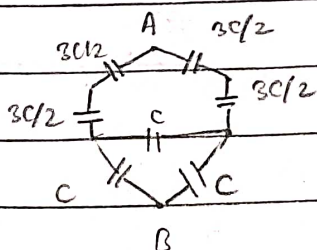 A
3C/2 3C/2
3C/2 3C/2
C
C C
B